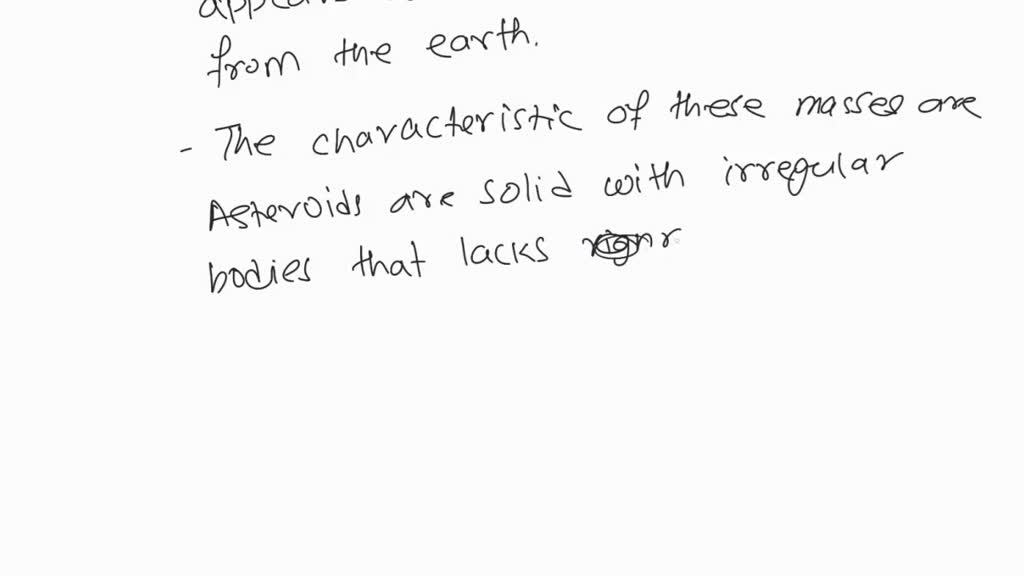 from the earth.
- The characteristic of these masses are
Asteroids are solid with irregular
bodies that lacks